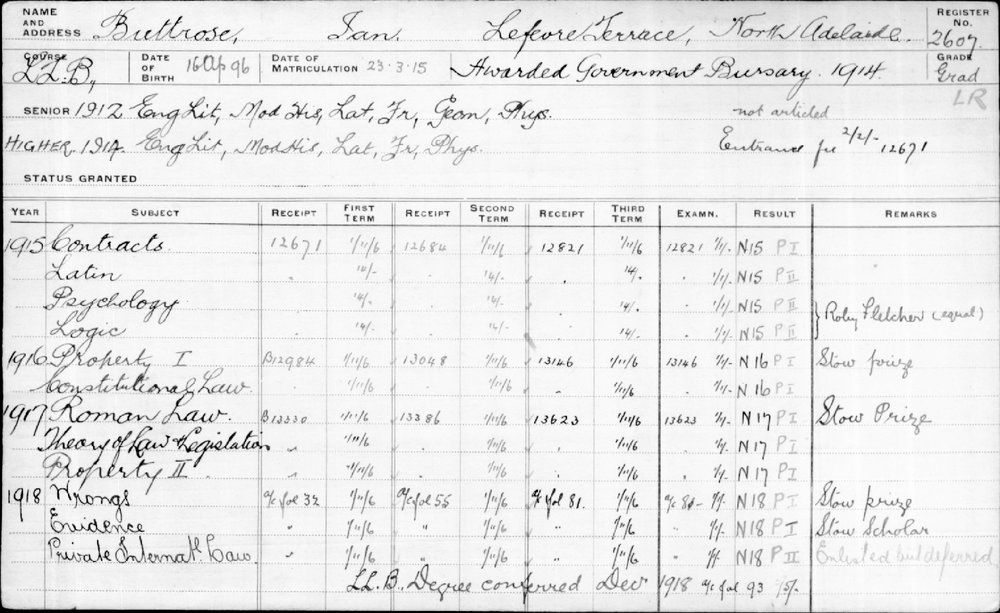 NAME AND ADDRESS Buttrose, Ian. Lefevre Terrace, North Adelaide. REGISTER No. 2607.
COURSE LL.B., DATE OF BIRTH 16 Ap 96 DATE OF MATRICULATION 23.3.15 Awarded Government Bursary. 1914. GRADE Grad
LR
SENIOR 1912 Eng Lit, Mod His, Lat, Fr, Geom, Phys. not articled
HIGHER 1914 Eng Lit, Mod His, Lat, Fr, Phys. Entrance fee 2/2/- 12671
STATUS GRANTED
YEAR SUBJECT RECEIPT FIRST TERM RECEIPT SECOND TERM RECEIPT THIRD TERM EXAMN. RESULT REMARKS
1915 Contracts. 12671 1/11/6 12684 1/11/6 12821 1/11/6 12821 1/1/- N15 P I
Latin . 14/- . 14/- . 14/- . 1/1/- N15 P II
Psychology . 14/- . 14/- . 14/- . 1/1/- N15 P II
Logic . 14/- . 14/- . 14/- . 1/1/- N15 P II } Roby Fletcher (equal)
1916 Property I B12984 1/11/6 13048 1/11/6 13146 1/11/6 13146 1/1/- N16 P I Stow prize
Constitutional Law . 1/11/6 . 1/11/6 . 1/11/6 . 1/1/- N16 P I
1917 Roman Law. B13330 1/11/6 13386 1/11/6 13623 1/11/6 13623 1/1/- N17 P I Stow Prize
Theory of Law & Legislation 1/11/6 . 1/11/6 . 1/11/6 . 1/1/- N17 P I
Property II . 1/11/6 1/11/6 . 1/11/6 . 1/1/- N17 P I
1918 Wrongs a/c fol 32 1/11/6 a/c fol 55 1/11/6 a/c fol 81. 1/11/6 a/c 80- 1/1/- N18 P I Stow prize
Evidence " 1/11/6 " 1/11/6 " 1/11/6 " 1/1/- N18 P I Stow Scholar
Private Internatl. Law. " 1/11/6 " 1/11/6 " 1/11/6 " 1/1/- N18 P II Enlisted but deferred
LL.B. Degree conferred Dec 1918 a/c fol 93